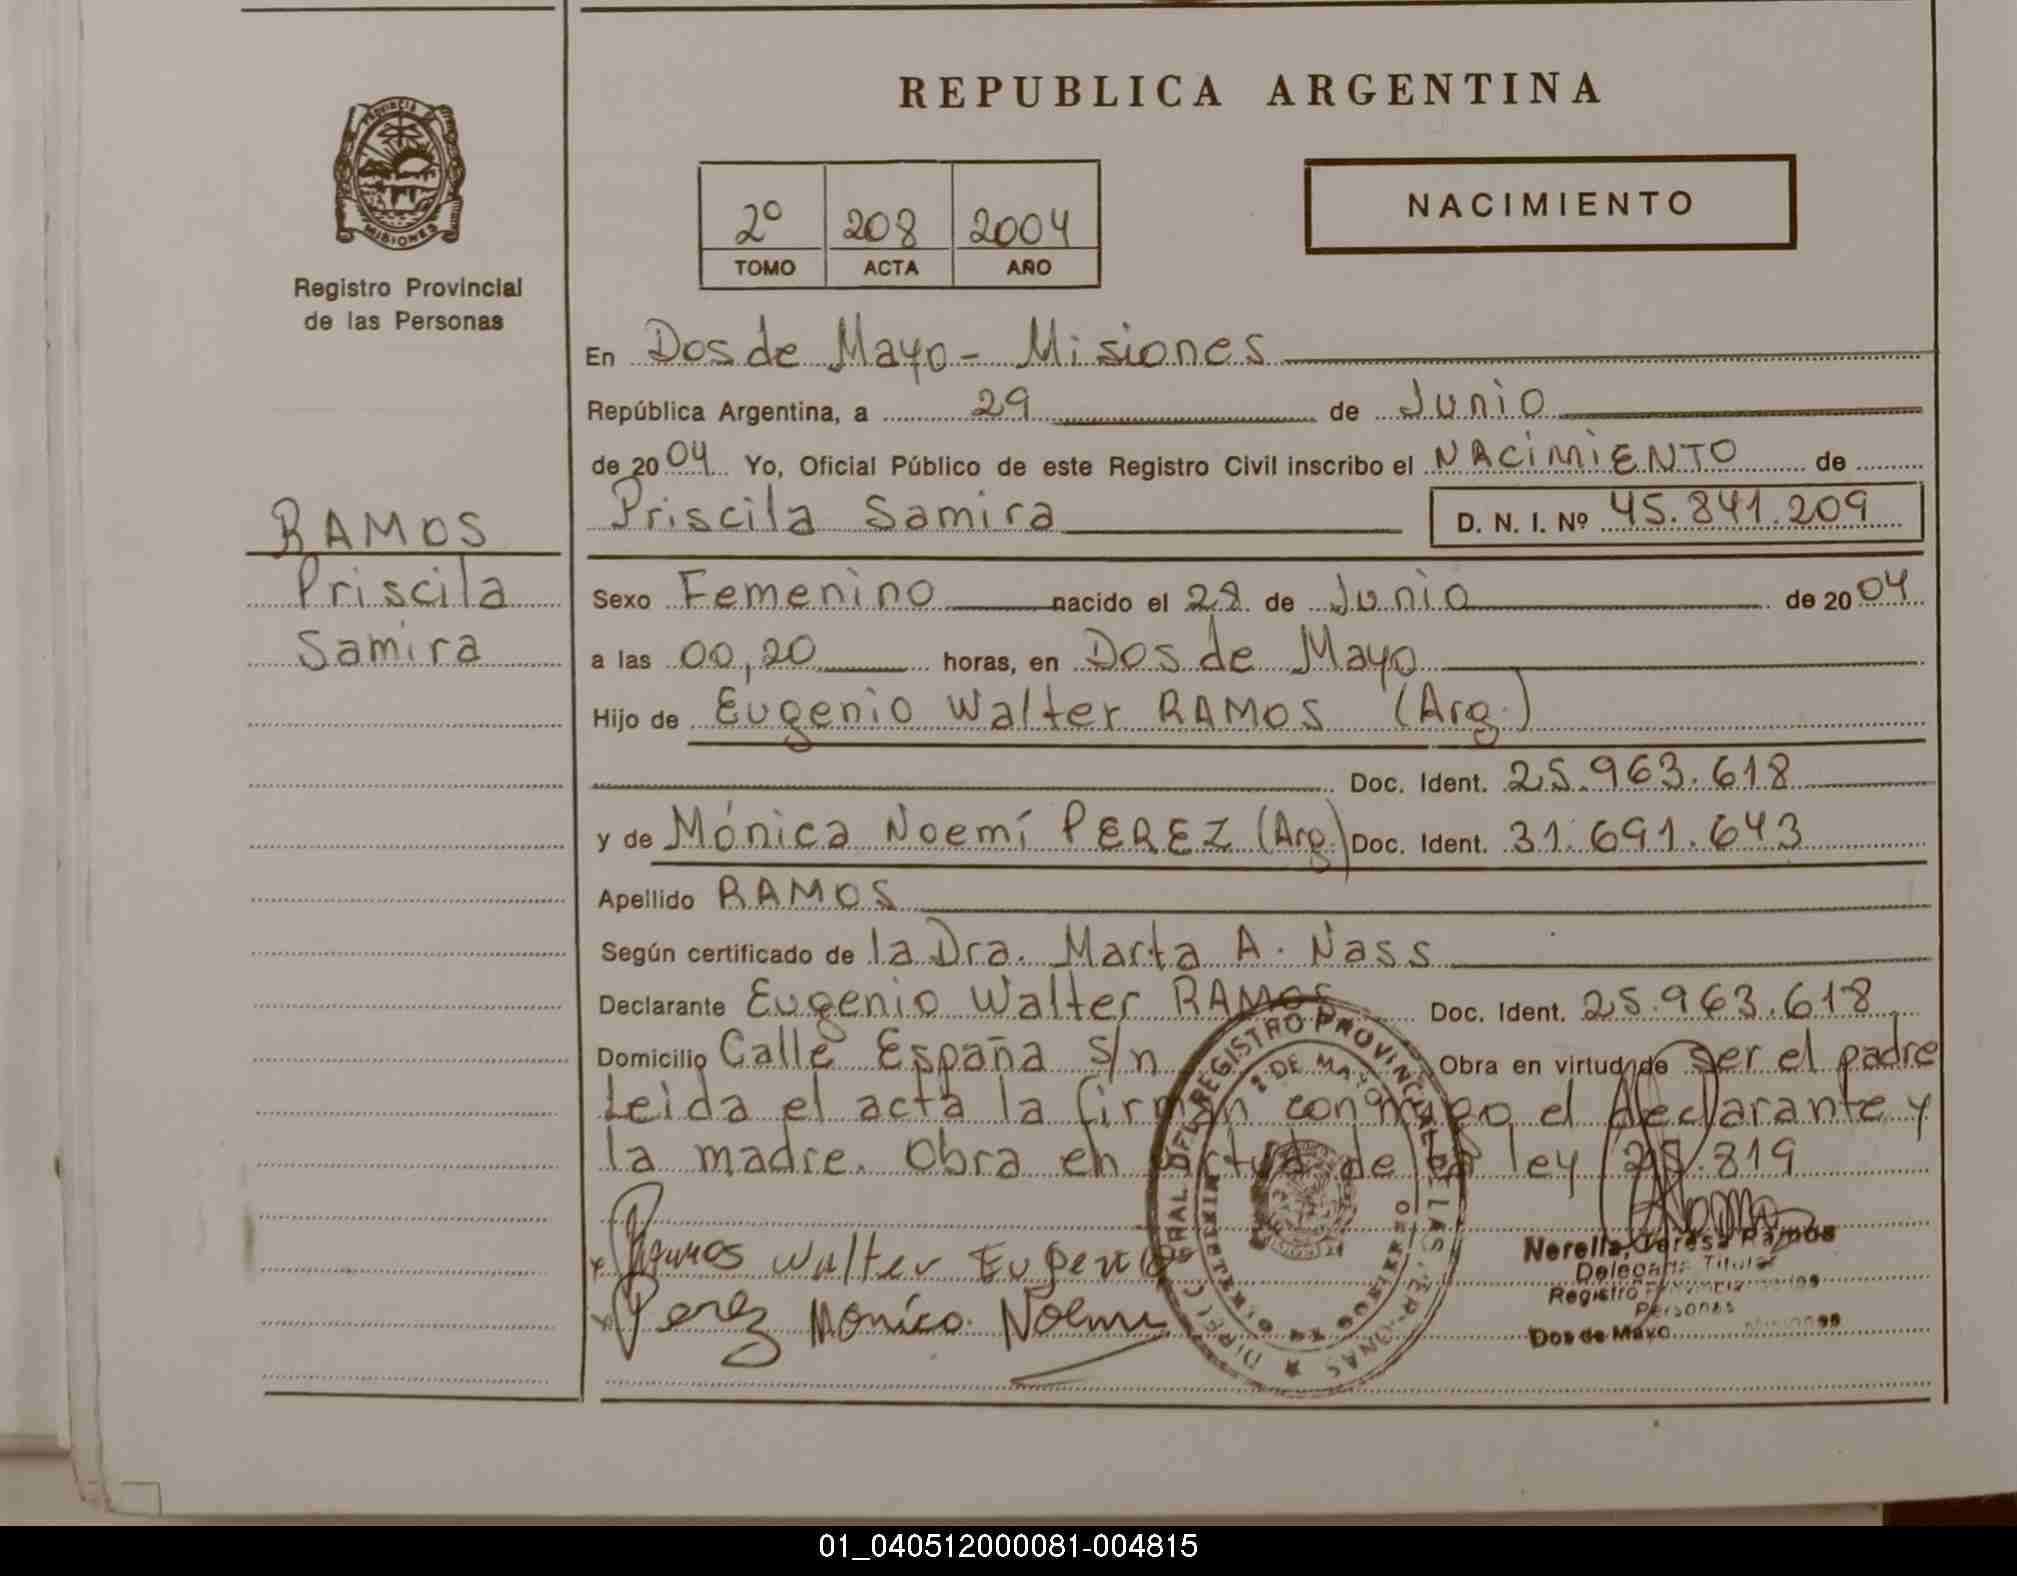 REPUBLICA ARGENTINA
PROVINCIA
MISIONES
Registro Provincial
de las Personas
2º 208 2004
TOMO ACTA AÑO
NACIMIENTO
En Dos de Mayo - Misiones
República Argentina, a 29 de Junio
de 2004 Yo, Oficial Público de este Registro Civil inscribo el NACIMIENTO de
Priscila Samira D. N. I. Nº 45.841.209
RAMOS
Priscila
Samira
Sexo Femenino nacido el 28 de Junio de 2004
a las 00,20 horas, en Dos de Mayo
Hijo de Eugenio Walter RAMOS (Arg.)
Doc. Ident. 25.963.618
y de Mónica Noemí PEREZ (Arg.) Doc. Ident. 31.691.643
Apellido RAMOS
Según certificado de la Dra. Marta A. Nass
Declarante Eugenio Walter RAMOS Doc. Ident. 25.963.618
Domicilio Calle España s/n Obra en virtud de ser el padre
Leida el acta la firman conmigo el declarante y
la madre. Obra en virtud de la ley 25.819
Ramos Walter Eugenio
Perez Monica Noemi
REGISTRO PROVINCIAL DE LAS PERSONAS
2 DE MAYO
Nerella, Teresa Ramos
Delegada Titular
Registro Provincial
Personas
Dos de Mayo Misiones
01_040512000081-004815